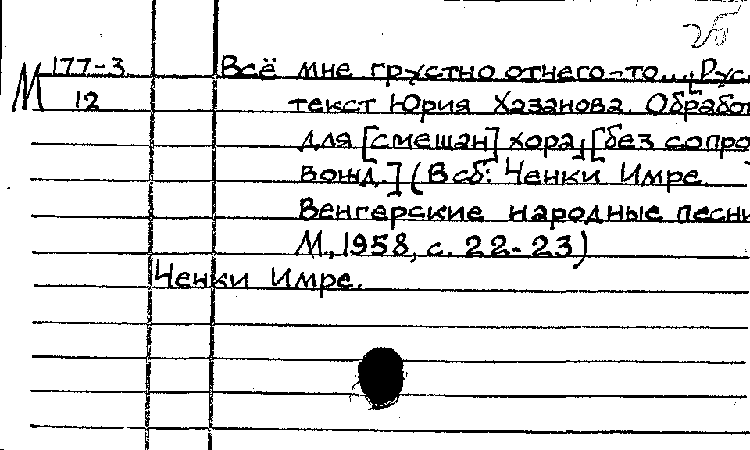 М 177-3
12
Всё мне грустно отчего-то...[Рус
текст Юрия Хазанова. Обработ
для [смешан] хора,[без сопро
вожд.] (В сб: Ченки Имре
Венгерские народные песни
М., 1958, с. 22-23)
Ченки Имре.